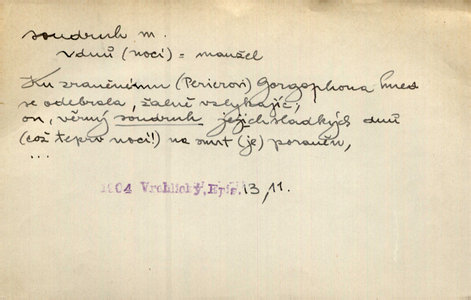 soudruh m.
v dnů (nocí) = manžel
Ku zraněnému (Perierovi) Gorgophona hned
se odebrala, žalně vzlykajíc;
on, věrný soudruh jejich sladkých dnů
(což teprv nocí!) na smrt (je) poraněn,
...
1904 Vrchlický, Epis. 13, 11.